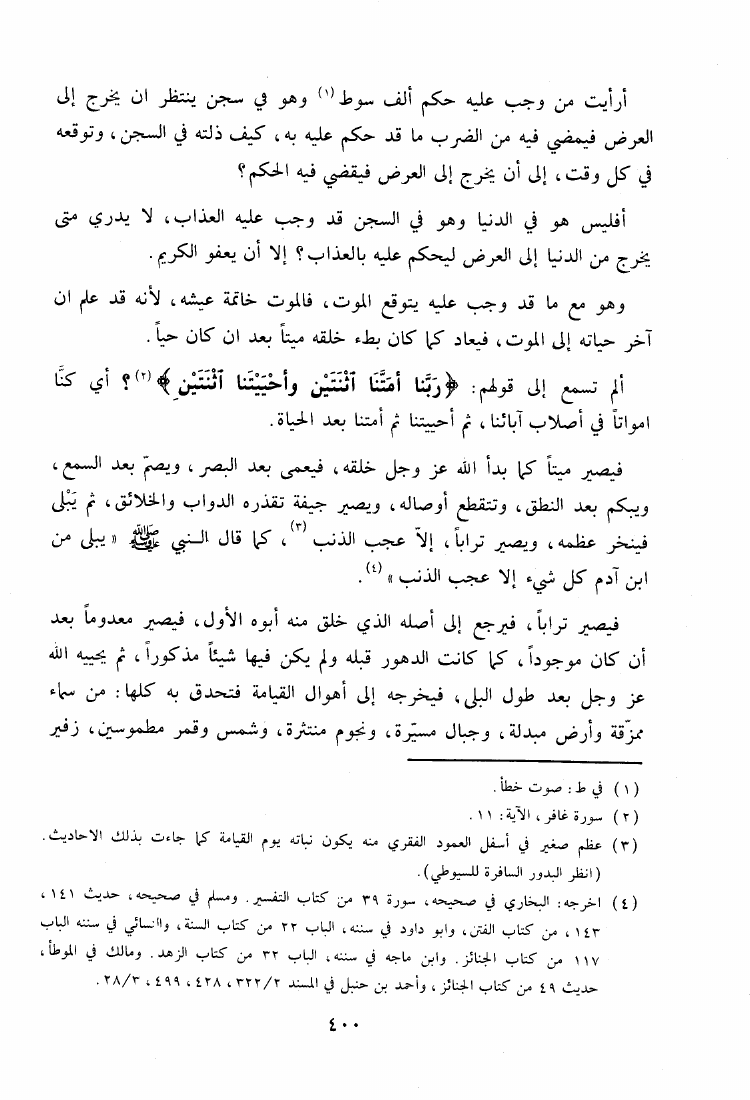 أرأيت من وجب عليه حكم ألف سوط (١) وهو في سجن ينتظر ان يخرج إلى
العرض فيمضي فيه من الضرب ما قد حكم عليه به، كيف ذلته في السجن، وتوقعه
في كل وقت، إلى أن يخرج إلى العرض فيقضي فيه الحكم؟
أفليس هو في الدنيا وهو في السجن قد وجب عليه العذاب، لا يدري متى
يخرج من الدنيا إلى العرض ليحكم عليه بالعذاب؟ إلا أن يعفو الكريم.
وهو مع ما قد وجب عليه يتوقع الموت، فالموت خاتمة عيشه، لأنه قد علم ان
آخر حياته إلى الموت، فيعاد كما كان بطء خلقه ميتاً بعد ان كان حياً.
ألم تسمع إلى قولهم: ﴿رَبَّنا أمَتَّنَا ٱثْنَتَيْن وأحْيَيْتَنا ٱثْنَتَيْنِ﴾ (٢)؟ أي كنَّا
امواتاً في أصلاب آبائنا، ثم أحييتنا ثم أمتنا بعد الحياة.
فيصير ميتاً كما بدأ الله عز وجل خلقه، فيعمى بعد البصر، ويصمّ بعد السمع،
ويبكم بعد النطق، وتتقطع أوصاله، ويصير جيفة تقذره الدواب والخلائق، ثم يَبْلى
فينخر عظمه، ويصير تراباً، إلاّ عجب الذنب (٣)، كما قال الـنبي ﷺ « يبلى من
ابن آدم كل شيء إلا عجب الذنب » (٤).
فيصير تراباً، فيرجع إلى أصله الذي خلق منه أبوه الأول، فيصير معدوماً بعد
أن كان موجوداً، كما كانت الدهور قبله ولم يكن فيها شيئاً مذكوراً، ثم يحييه الله
عز وجل بعد طول البلى، فيخرجه إلى أهوال القيامة فتحدق به كلها: من سماء
ممزّقة وأرض مبدلة، وجبال مسيّرة، ونجوم منتثرة، وشمس وقمر مطموسين، زفير
(١) في ط: صوت خطأ.
(٢) سورة غافر، الآية: ١١.
(٣) عظم صغير في أسفل العمود الفقري منه يكون نباته يوم القيامة كما جاءت بذلك الاحاديث.
(انظر البدور السافرة للسيوطي).
(٤) اخرجه: البخاري في صحيحه، سورة ٣٩ من كتاب التفسير. ومسلم في صحيحه، حديث ١٤١،
١٤٣، من كتاب الفتن، وابو داود في سننه، الباب ٢٢ من كتاب السنة، والنسائي في سننه الباب
١١٧ من كتاب الجنائز. وابن ماجه في سننه، الباب ٣٢ من كتاب الزهد. ومالك في الموطأ،
حديث ٤٩ من كتاب الجنائز، وأحمد بن حنبل في المسند ٣٢٢/٢، ٤٢٨، ٤٩٩، ٢٨/٣.
٤٠٠